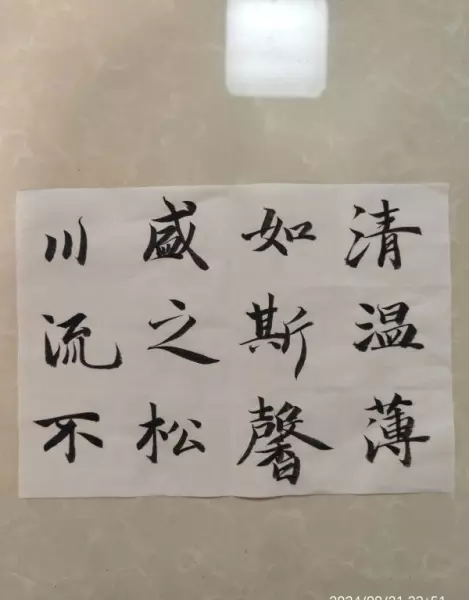 清温薄
如斯馨
盛之松
川流不